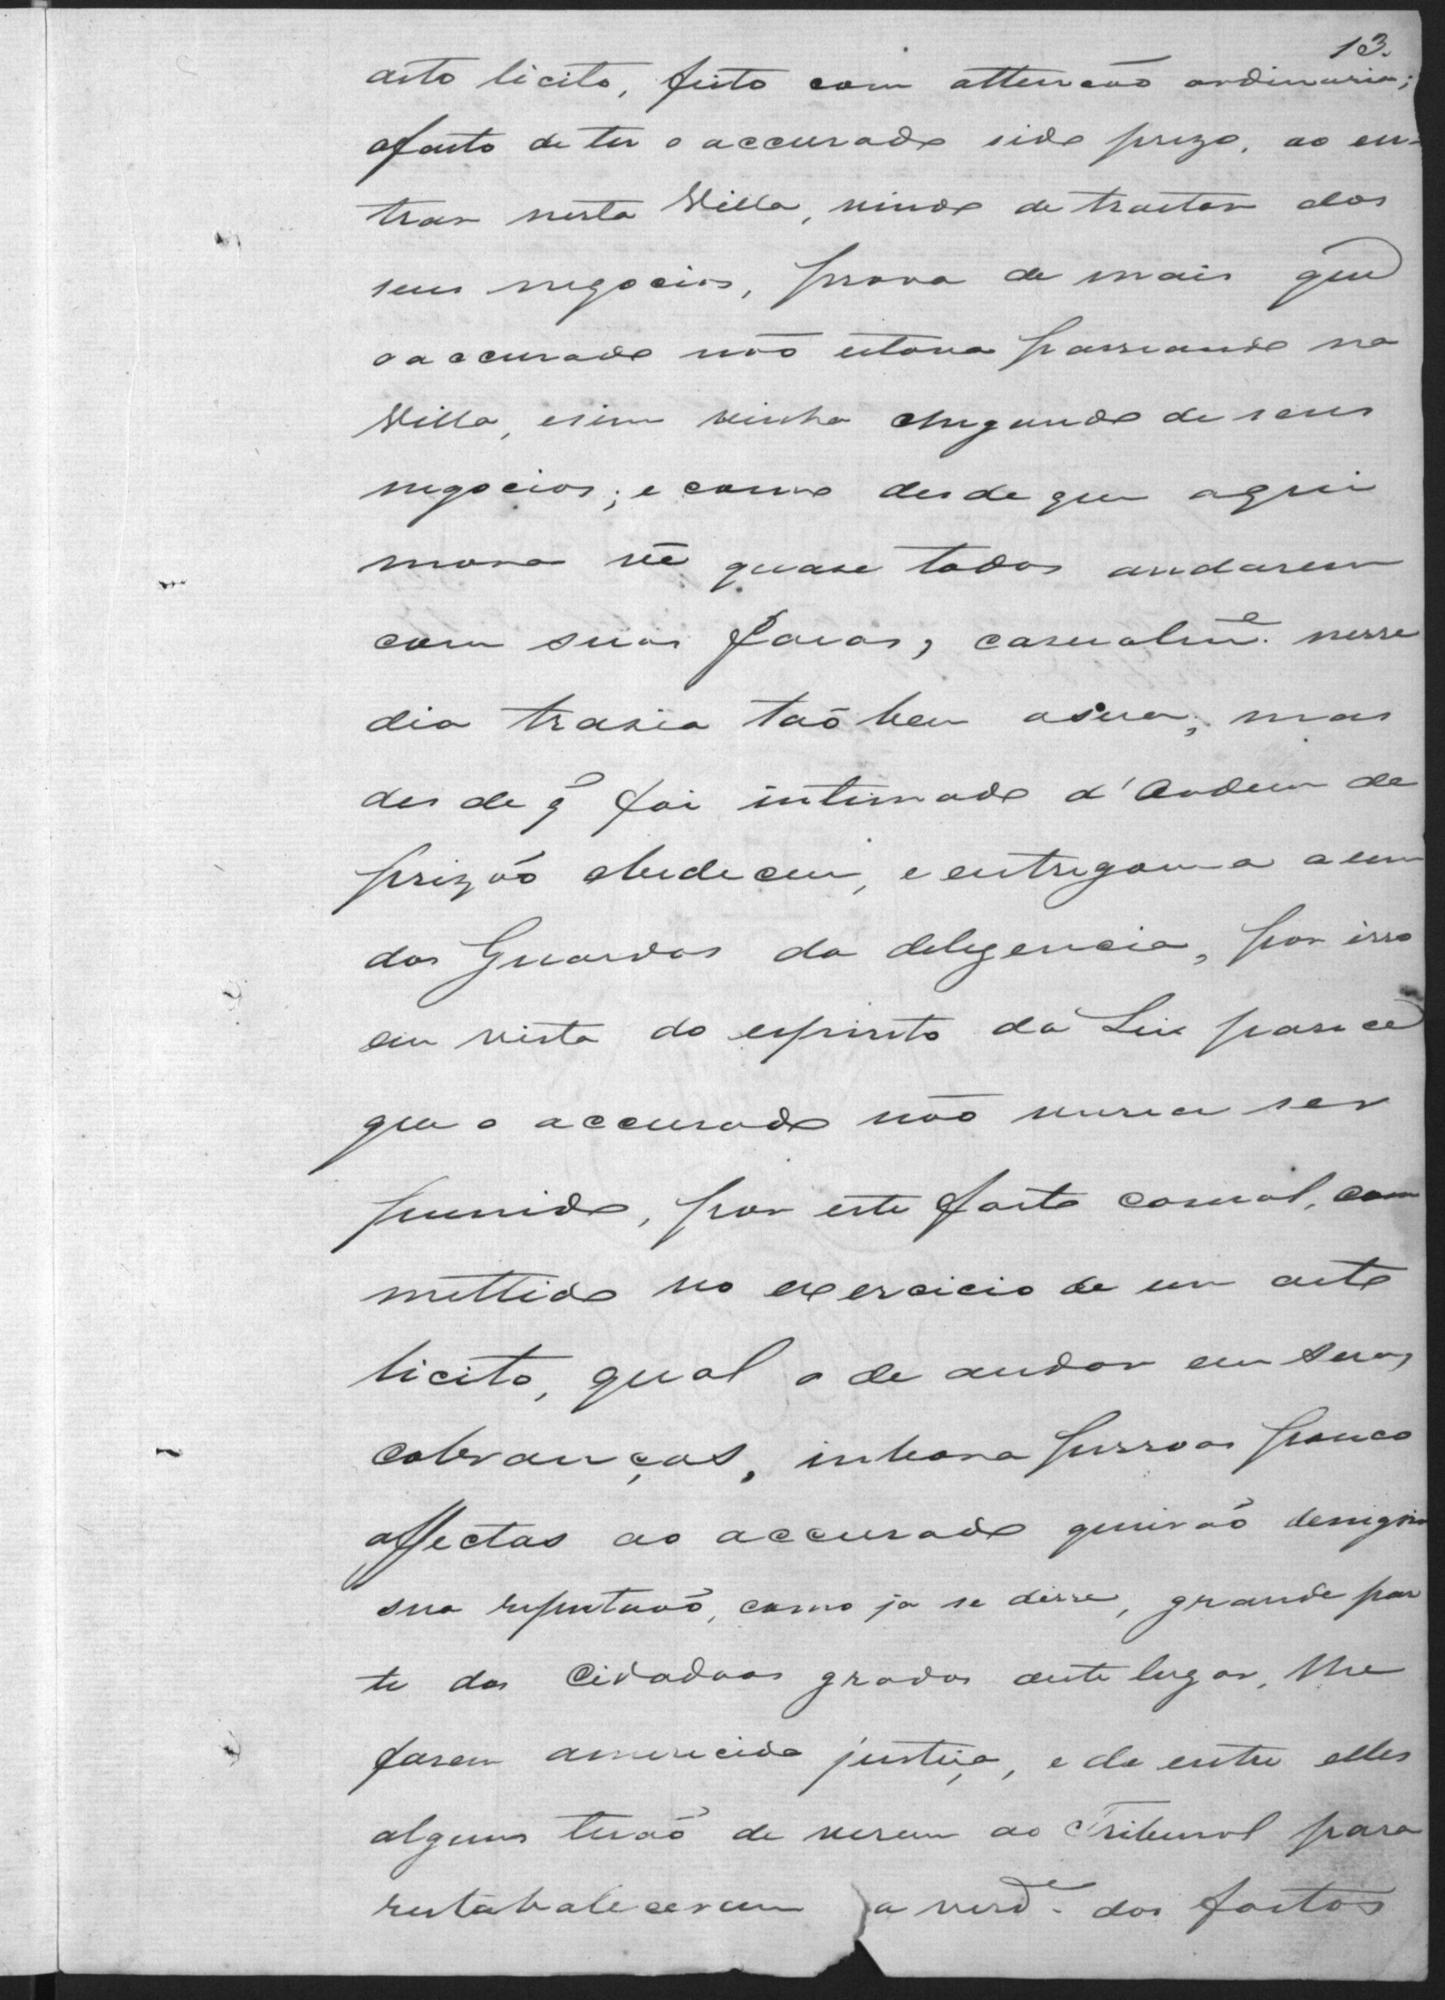 13.
acto licito, feito com attenção ordinaria;
o facto de ter o accusado sido prezo, ao en-
trar nesta Villa, vindo de tractar dos
seus negocios, prova de mais que
o accusado não estava passeando na
Villa, e sim vinha chegando de seus
negocios; e como desde que aqui
mora vê quase todos andarem
com suas facas, casualmᵉ. nesse
dia trasia taõbem a sua; mas
des de q̃ foi intimado d'Ordem de
prizão obedeceu, e entregou-a a um
dos Guardas da deligencia, por isso
em vista do espirito da Lei parece
que o accusado não merece ser
punido, por este facto casual, com
mettido no exercicio de um acto
licito, qual o de andar em suas
cobranças, embora pessoas pouco
affectas ao accusado queirão denegrir
sua reputação, como ja se disse, grande par
te dos Cidadaos grados deste lugar, lhe
fasem a merecida justiça, e de entre elles
alguns terão de virem ao Tribunal para
restabalecerem a verdᵉ. dos factos